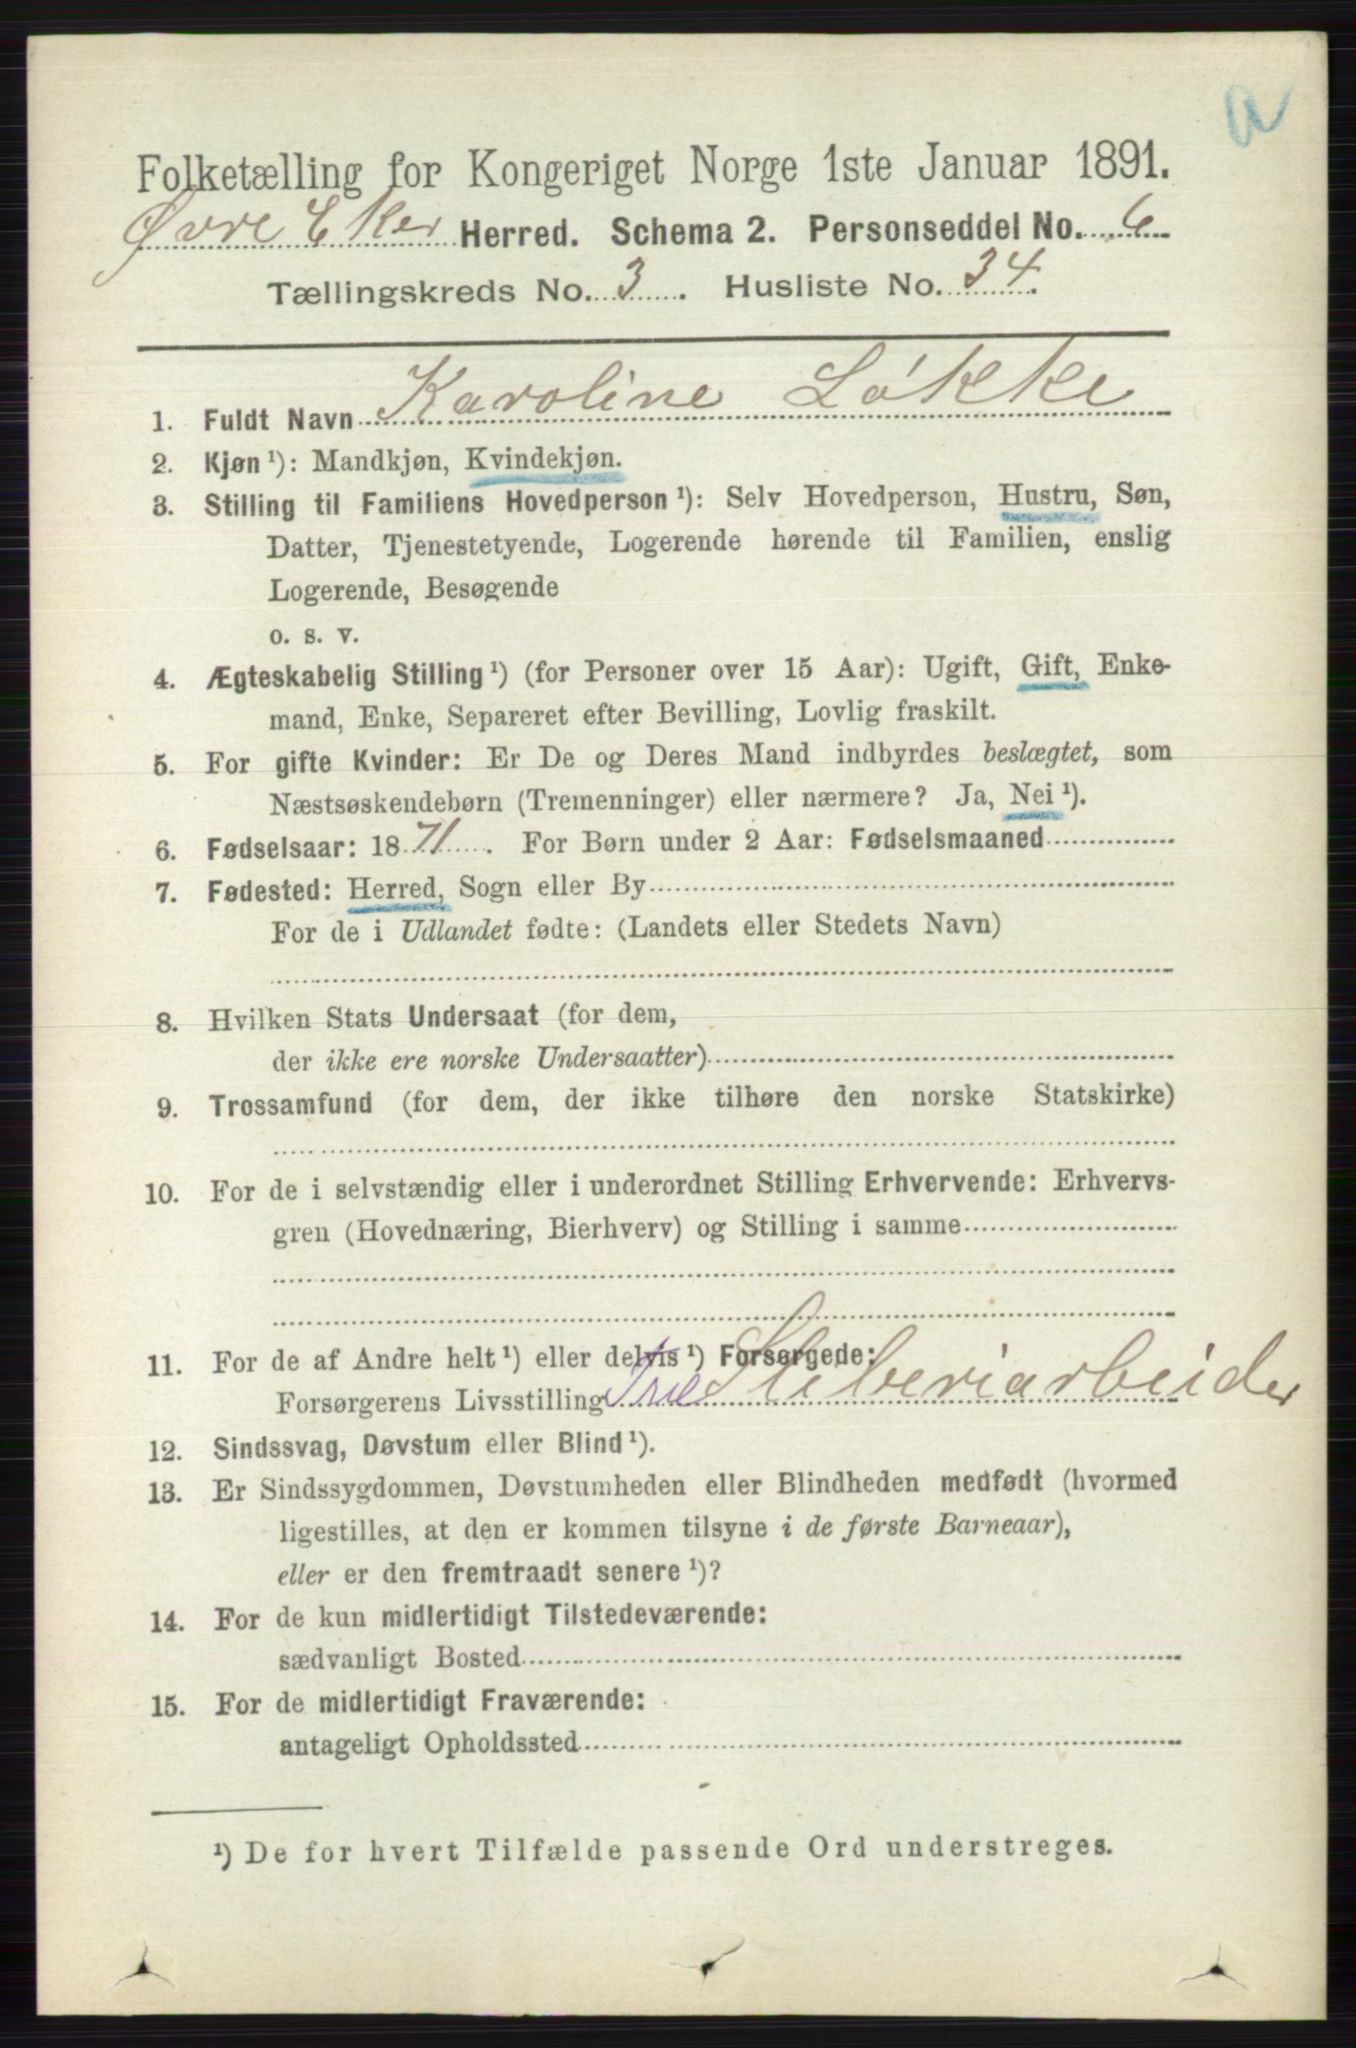 a
Folketælling for Kongeriget Norge 1ste Januar 1891.
Øvre Eker Herred. Schema 2. Personseddel No. 6
Tællingskreds No. 3. Husliste No. 34.
1. Fuldt Navn Karoline Løkke
2. Kjøn ¹): Mandkjøn, Kvindekjøn.
3. Stilling til Familiens Hovedperson ¹): Selv Hovedperson, Hustru, Søn,
Datter, Tjenestetyende, Logerende hørende til Familien, enslig
Logerende, Besøgende
o. s. v.
4. Ægteskabelig Stilling ¹) (for Personer over 15 Aar): Ugift, Gift, Enke-
mand, Enke, Separeret efter Bevilling, Lovlig fraskilt.
5. For gifte Kvinder: Er De og Deres Mand indbyrdes beslægtet, som
Næstsøskendebørn (Tremenninger) eller nærmere? Ja, Nei ¹).
6. Fødselsaar: 1871. For Børn under 2 Aar: Fødselsmaaned
7. Fødested: Herred, Sogn eller By
For de i Udlandet fødte: (Landets eller Stedets Navn)
8. Hvilken Stats Undersaat (for dem,
der ikke ere norske Undersaatter)
9. Trossamfund (for dem, der ikke tilhøre den norske Statskirke)
10. For de i selvstændig eller i underordnet Stilling Erhvervende: Erhvervs-
gren (Hovednæring, Bierhverv) og Stilling i samme
11. For de af Andre helt ¹) eller delvis ¹) Forsørgede:
Forsørgerens Livsstilling Træ Sliberiarbeider
12. Sindssvag, Døvstum eller Blind ¹).
13. Er Sindssygdommen, Døvstumheden eller Blindheden medfødt (hvormed
ligestilles, at den er kommen tilsyne i de første Barneaar),
eller er den fremtraadt senere ¹)?
14. For de kun midlertidigt Tilstedeværende:
sædvanligt Bosted
15. For de midlertidigt Fraværende:
antageligt Opholdssted
¹) De for hvert Tilfælde passende Ord understreges.